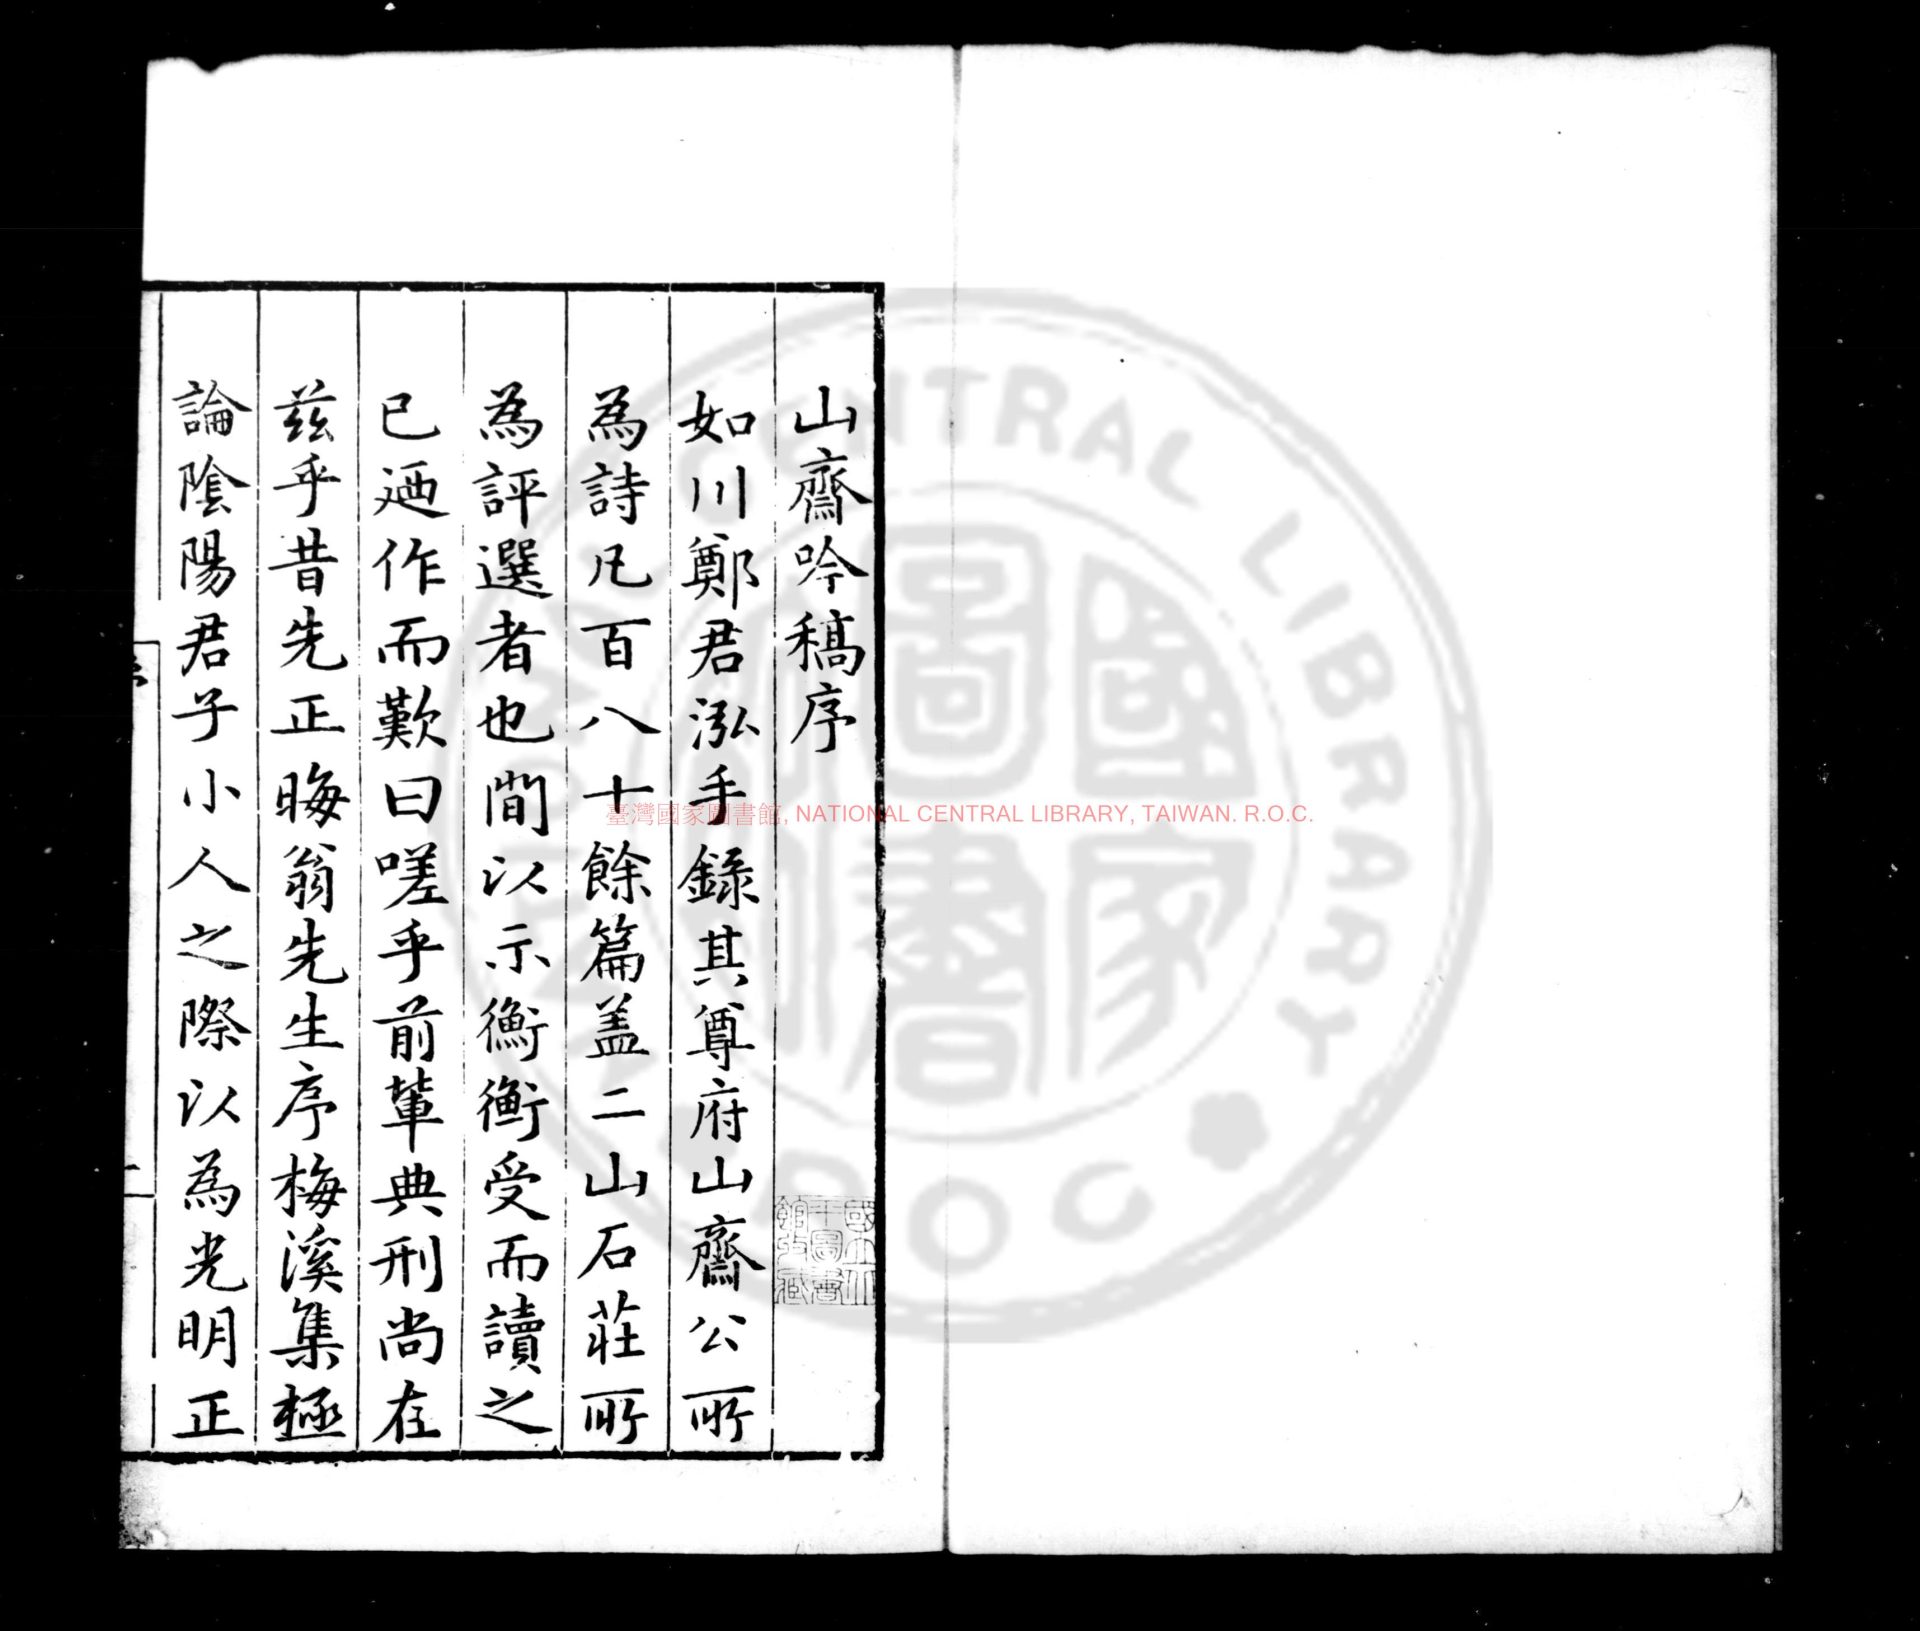 山齋吟稿序
如川鄭君泓手錄其尊府山齋公所
為詩凡百八十餘篇盖二山石莊所
為評選者也間以示衡衡受而讀之
已廼作而歎曰嗟乎前輩典刑尚在
兹乎昔先正晦翁先生序梅溪集極
論陰陽君子小人之際以為光明正
臺灣國家圖書館, NATIONAL CENTRAL LIBRARY, TAIWAN. R.O.C.
國家圖書
CENTRAL LIBRARY
R.O.C
國立中央圖書館收藏